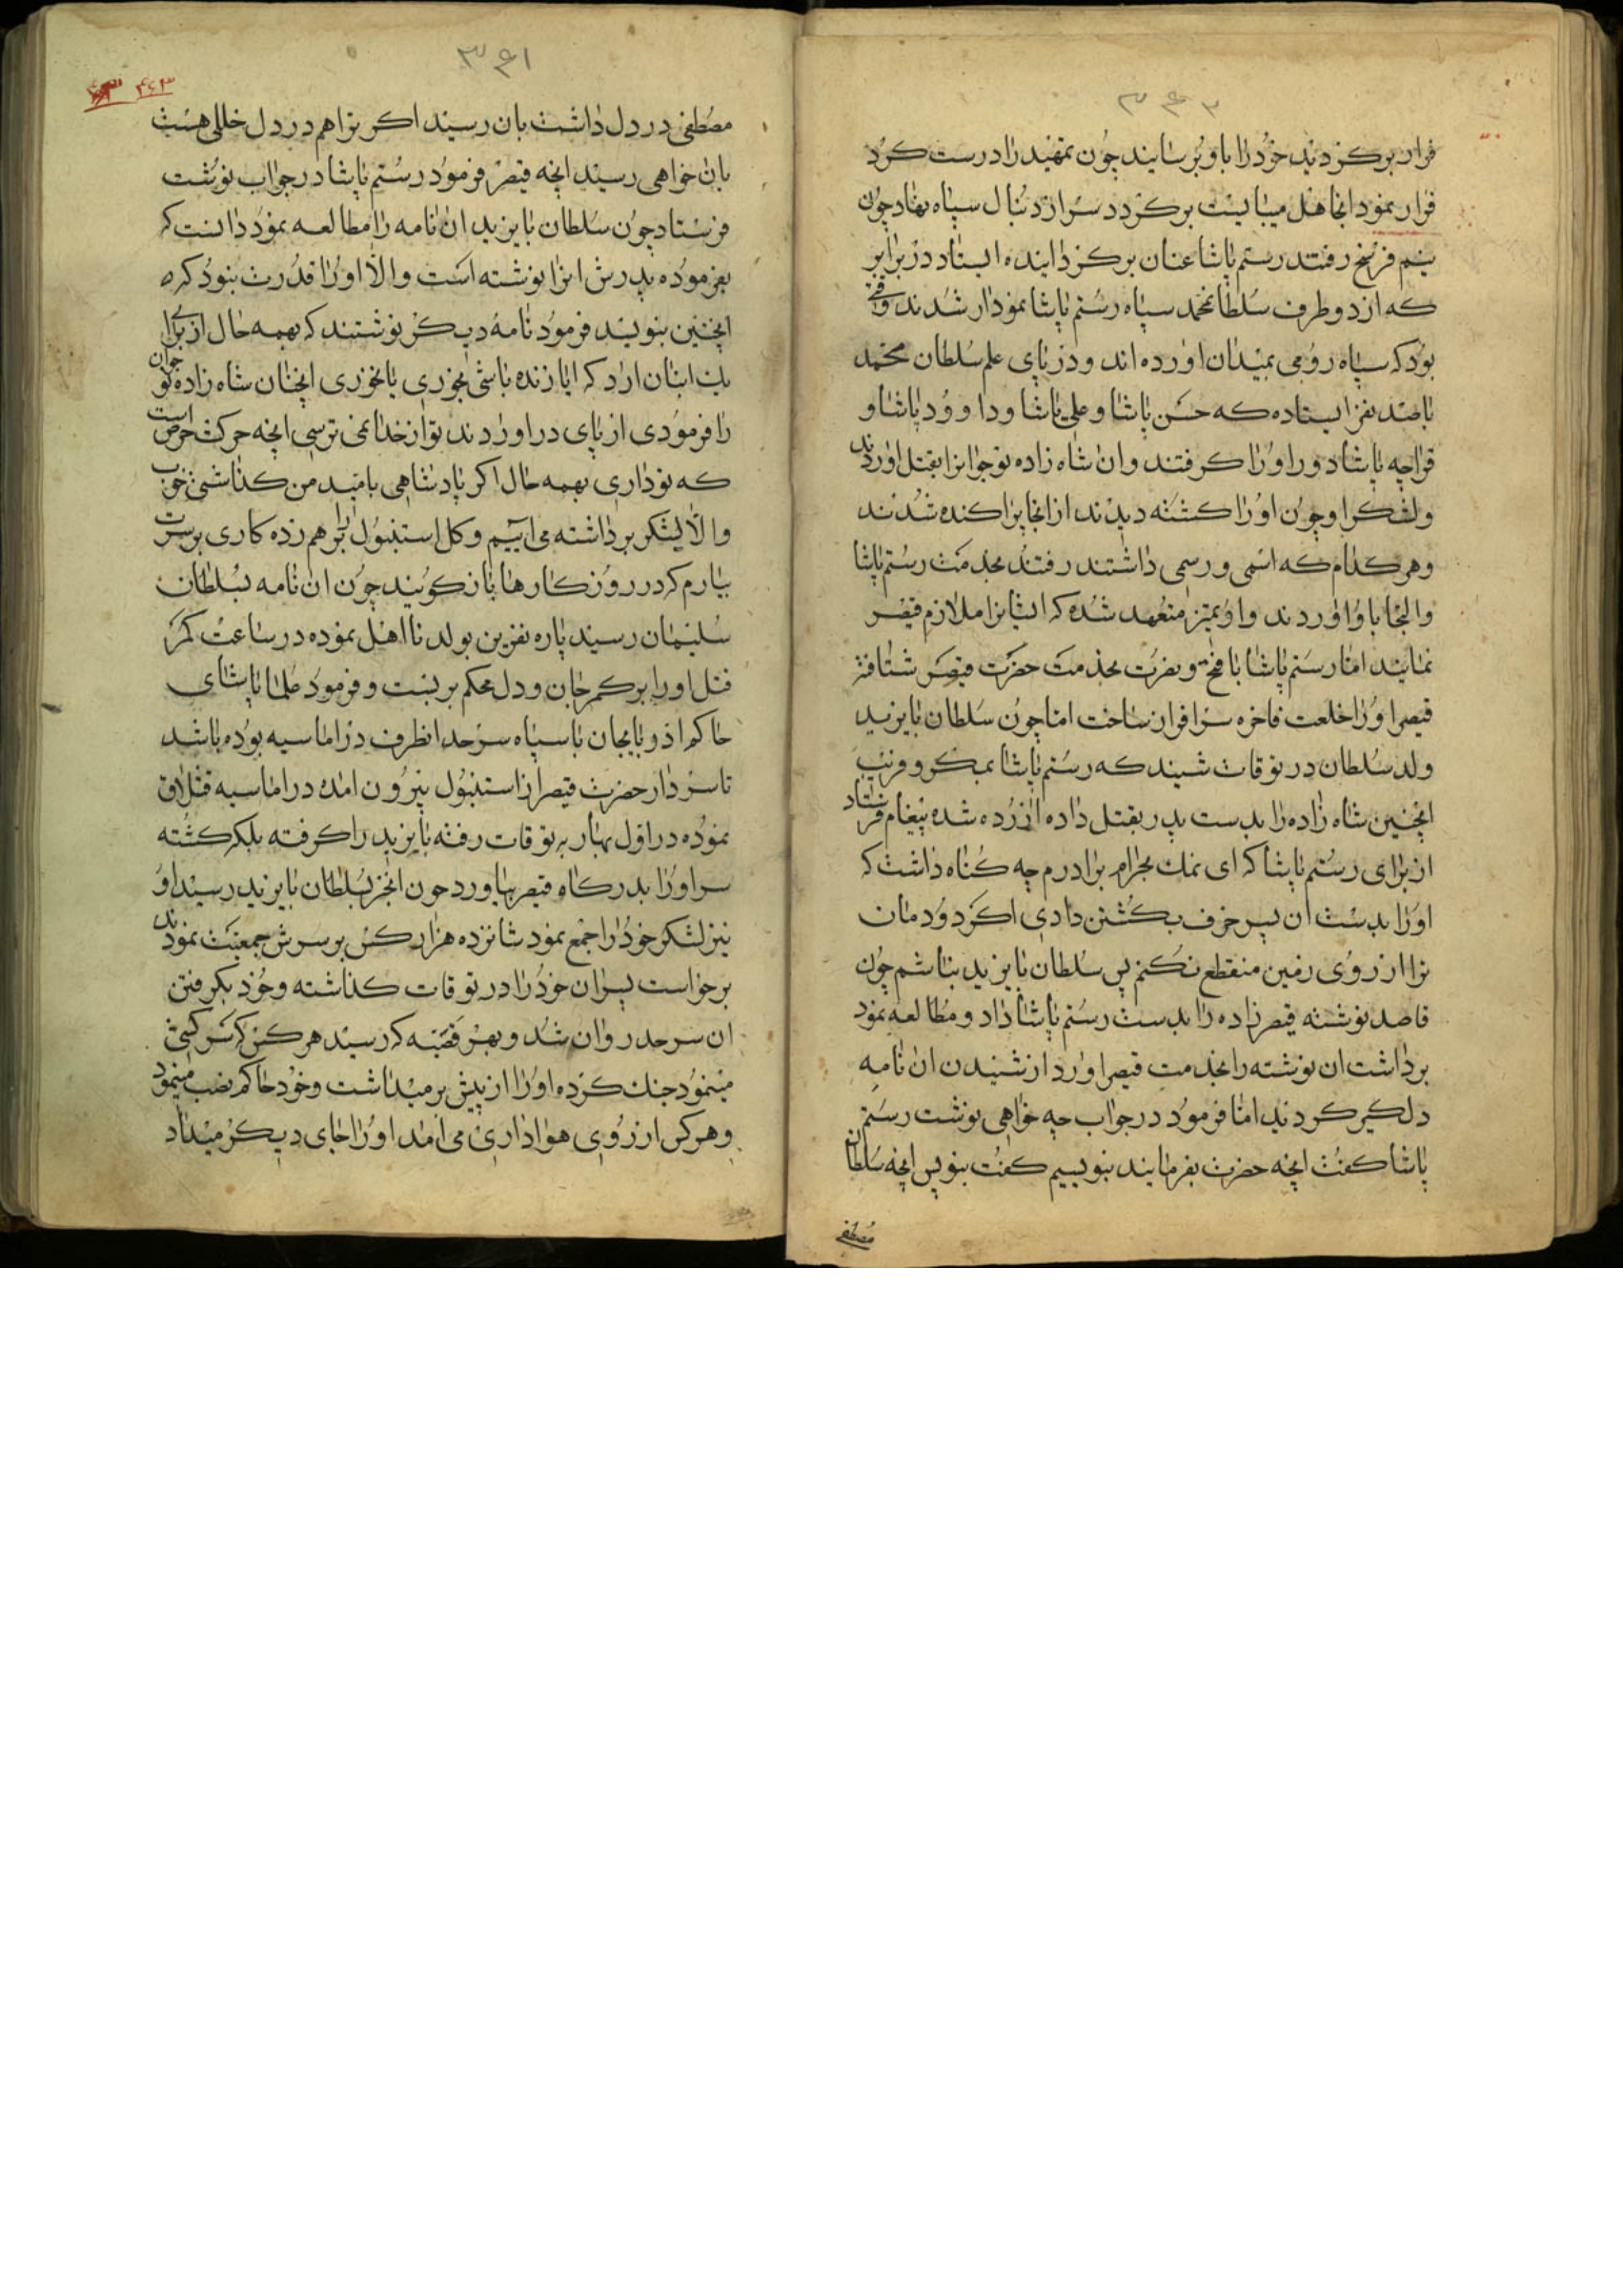 ۳۶۲
فرار برکردید خود را باو برسایند چون تمهید را درست کرد
قرار نمود انجا هل میبایست برکردد سر از دنبال سپاه نهاد چون
نیم فرسخ رفتند رستم پاشا عنان برکردانیده ایستاد در برابر
که از دو طرف سلطانمحمد سپاه رستم پاشا نمودار شدند وقتی
بود که سپاه رومی بمیدان اورده اند و در پای علم سلطان محمد
باصد نفر ایستاده که حسن پاشا و علی پاشا و داوود پاشا و
قراچه پاشا دور او را کرفتند و ان شاه زاده نوجوانرا بقتل اوردند
ولشکر او چون او را کشته دیدند از انجا پراکنده شدند
وهر کدام که اسمی و رسمی داشتند رفتند بخدمت رستم پاشا
والجا باو اوردند و او نیز متعهد شده که ایشانرا ملازم قیصر
نمایند اما رستم پاشا با فتح و نصرت بخدمت حضرت قیصر شتافته
قیصر او را خلعت فاخره سرافراز ساخت اما چون سلطان بایزید
ولد سلطان در توقات شیند که رستم پاشا بمکر و فریب
انچنین شاه زاده را بدست پدر بقتل داده ازرده شده پیغام فرستاد
از برای رستم پاشا که ای نمک بحرام برادرم چه کناه داشت که
او را بدست ان پیر خرف بکشتن دادی اکر دودمان
ترا از روی زمین منقطع نکنم پس سلطان بایزید نباشم چون
قاصد نوشته قیصر زاده را بدست رستم پاشا داد و مطالعه نمود
برداشت ان نوشته را بخدمت قیصر اورد از شنیدن ان نامه
دلکیر کردید اما فرمود در جواب چه خواهی نوشت رستم
پاشا کفت انچه حضرت بفرمایند بنویسیم کفت بنویس انچه سلطان
مصطفی
۳۶۱
۴۴۳
مصطفی در دل داشت بان رسید اکر ترا هم در دل خللی هست
بان خواهی رسید انچه قیصر فرمود رستم پاشا در جواب نوشت
فرستاد چون سلطان بایزید ان نامه را مطالعه نمود دانست که
بفرموده پدرش انرا نوشته است والا او را قدرت نبود که
انچنین بنویسد فرمود نامه دیکر نوشتند که بهمه حال از برای
یک انبان ارد که ایا زنده باشی بخوری یا نخوری انچنان شاه زاده نو جوان
را فرمودی از پای در اوردند تو از خدا نمی ترسی انچه حرکت حرص است
که تو داری بهمه حال اکر پادشاهی بامید من کذاشتی خوب
والا لشکر برداشته می اییم و کل استنبول را بر هم زده کاری بر سرت
بیارم که در روزکارها باز کویند چون ان نامه بسلطان
سلیمان رسید پاره نفرین بولد نا اهل نموده در ساعت کمر
قتل او را بر کمر جان و دل محکم بر بست و فرمود پاشای
حاکم اذربایجان با سپاه سرحد انطرف در اماسیه بوده باشد
تا سردار حضرت قیصر از استنبول بیرون امده در اماسیه قشلاق
نموده در اول بهار به توقات رفته بایزید را کرفته بلکه کشته
سر او را بدرکاه قیصر بیاورد چون انخبر بسلطان بایزید رسید او
نیز لشکر خود را جمع نمود شانزده هزار کس بر سرش جمعیت نمودند
برخواست پسران خود را در توقات کذاشته و خود بکرفتن
ان سرحد روان شد و بهر قصبه که رسید هر کس که سرکشی
مینمود جنک کرده او را از پیش برمیداشت و خود حاکم نصب مینمود
وهر کس از روی هواداری می امد او را جای دیکر میداد